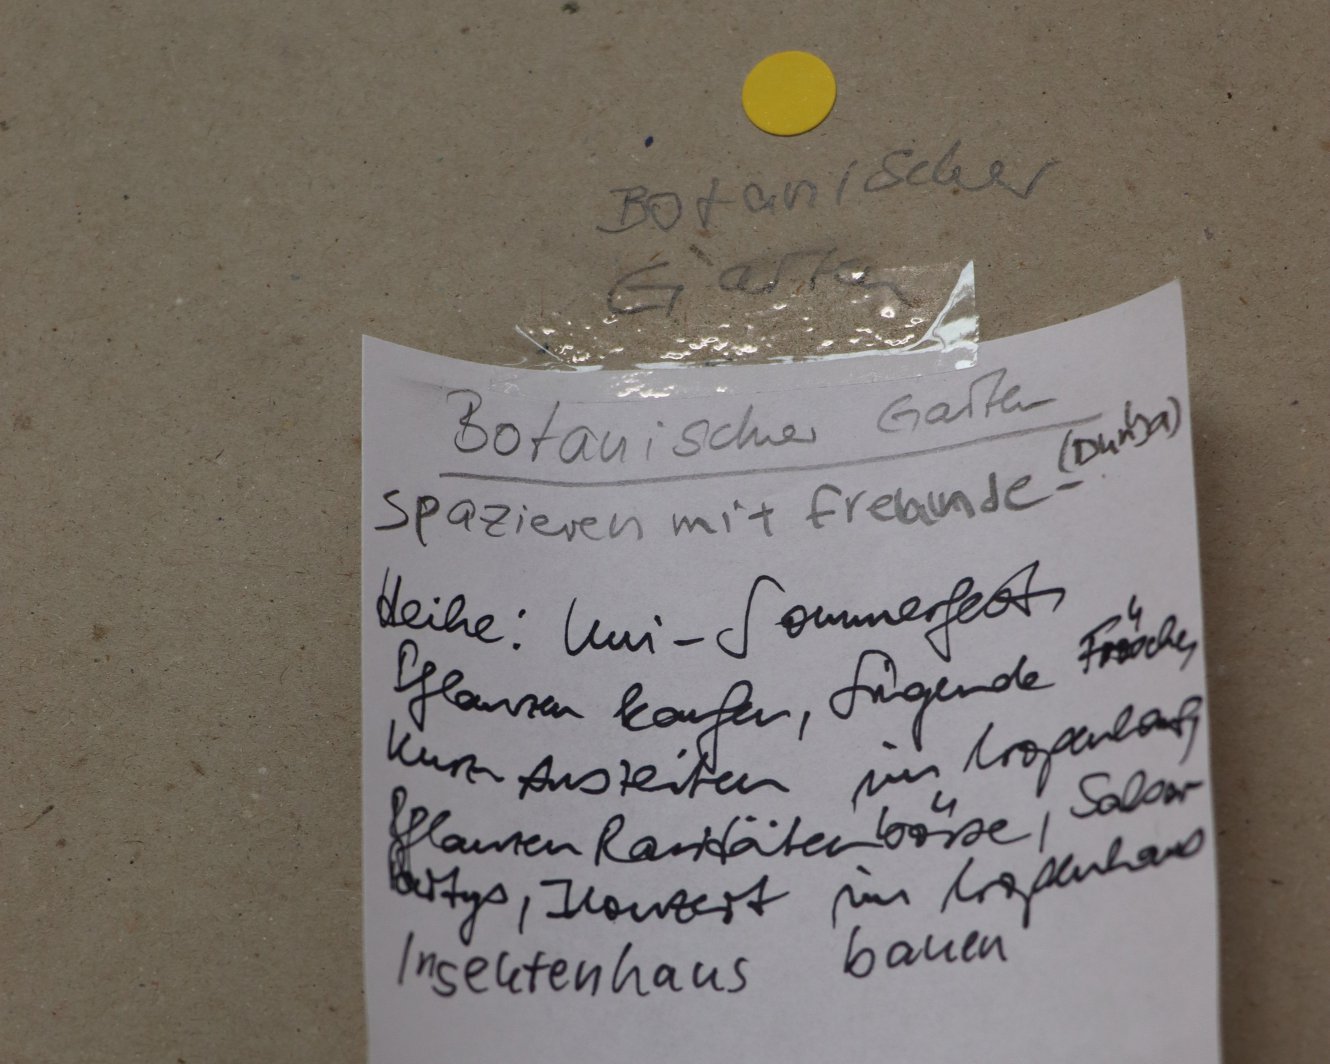 Botanischer
Garten
Botanischer Garten
spazieren mit freunde - (Dunja)
Heike: Uni-Sommerfest,
Pflanzen kaufen, singende Frösche,
kurze Auszeiten im Tropenhaus,
Pflanzen Raritätenbörse, Salsa-
Partys, Konzert im Tropenhaus
Insektenhaus bauen